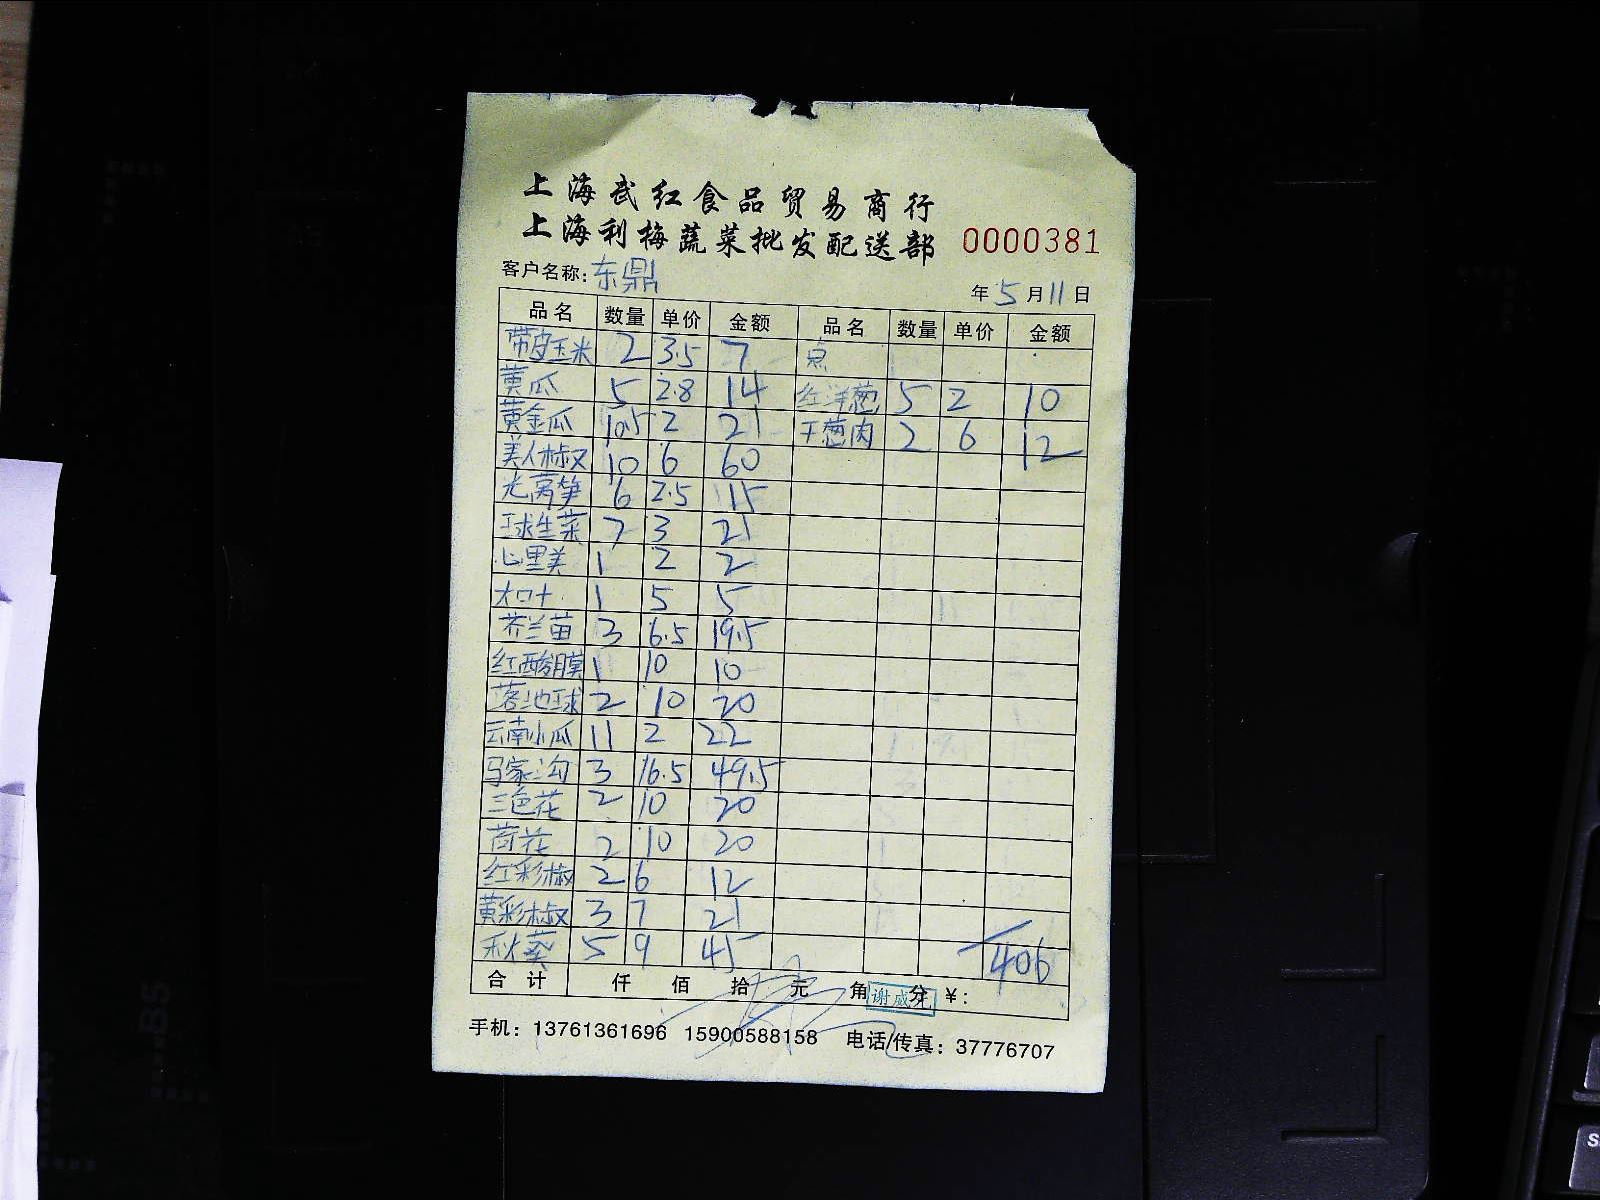 上海武红食品贸易商行
上海利梅蔬菜批发配送部 0000381
客户名称:东鼎
年5月11日
品名 数量 单价 金额 品名 数量 单价 金额
带皮玉米 2 3.5 7 点
黄瓜 5 2.8 14 红洋葱 5 2 10
黄金瓜 10.5 2 21 干葱肉 2 6 12
美人椒 10 6 60
光莴笋 6 2.5 15
球生菜 7 3 21
心里美 1 2 2
大口十 1 5 5
芥兰苗 3 6.5 19.5
红酸膜 1 10 10
落地球 2 10 20
云南小瓜 11 2 22
马家沟 3 16.5 49.5
三色花 2 10 20
荷花 2 10 20
红彩椒 2 6 12
黄彩椒 3 7 21
秋葵 5 9 45 406
合计 仟 佰 拾 元 角 分 ¥:
手机:13761361696 15900588158 电话/传真:37776707
B5